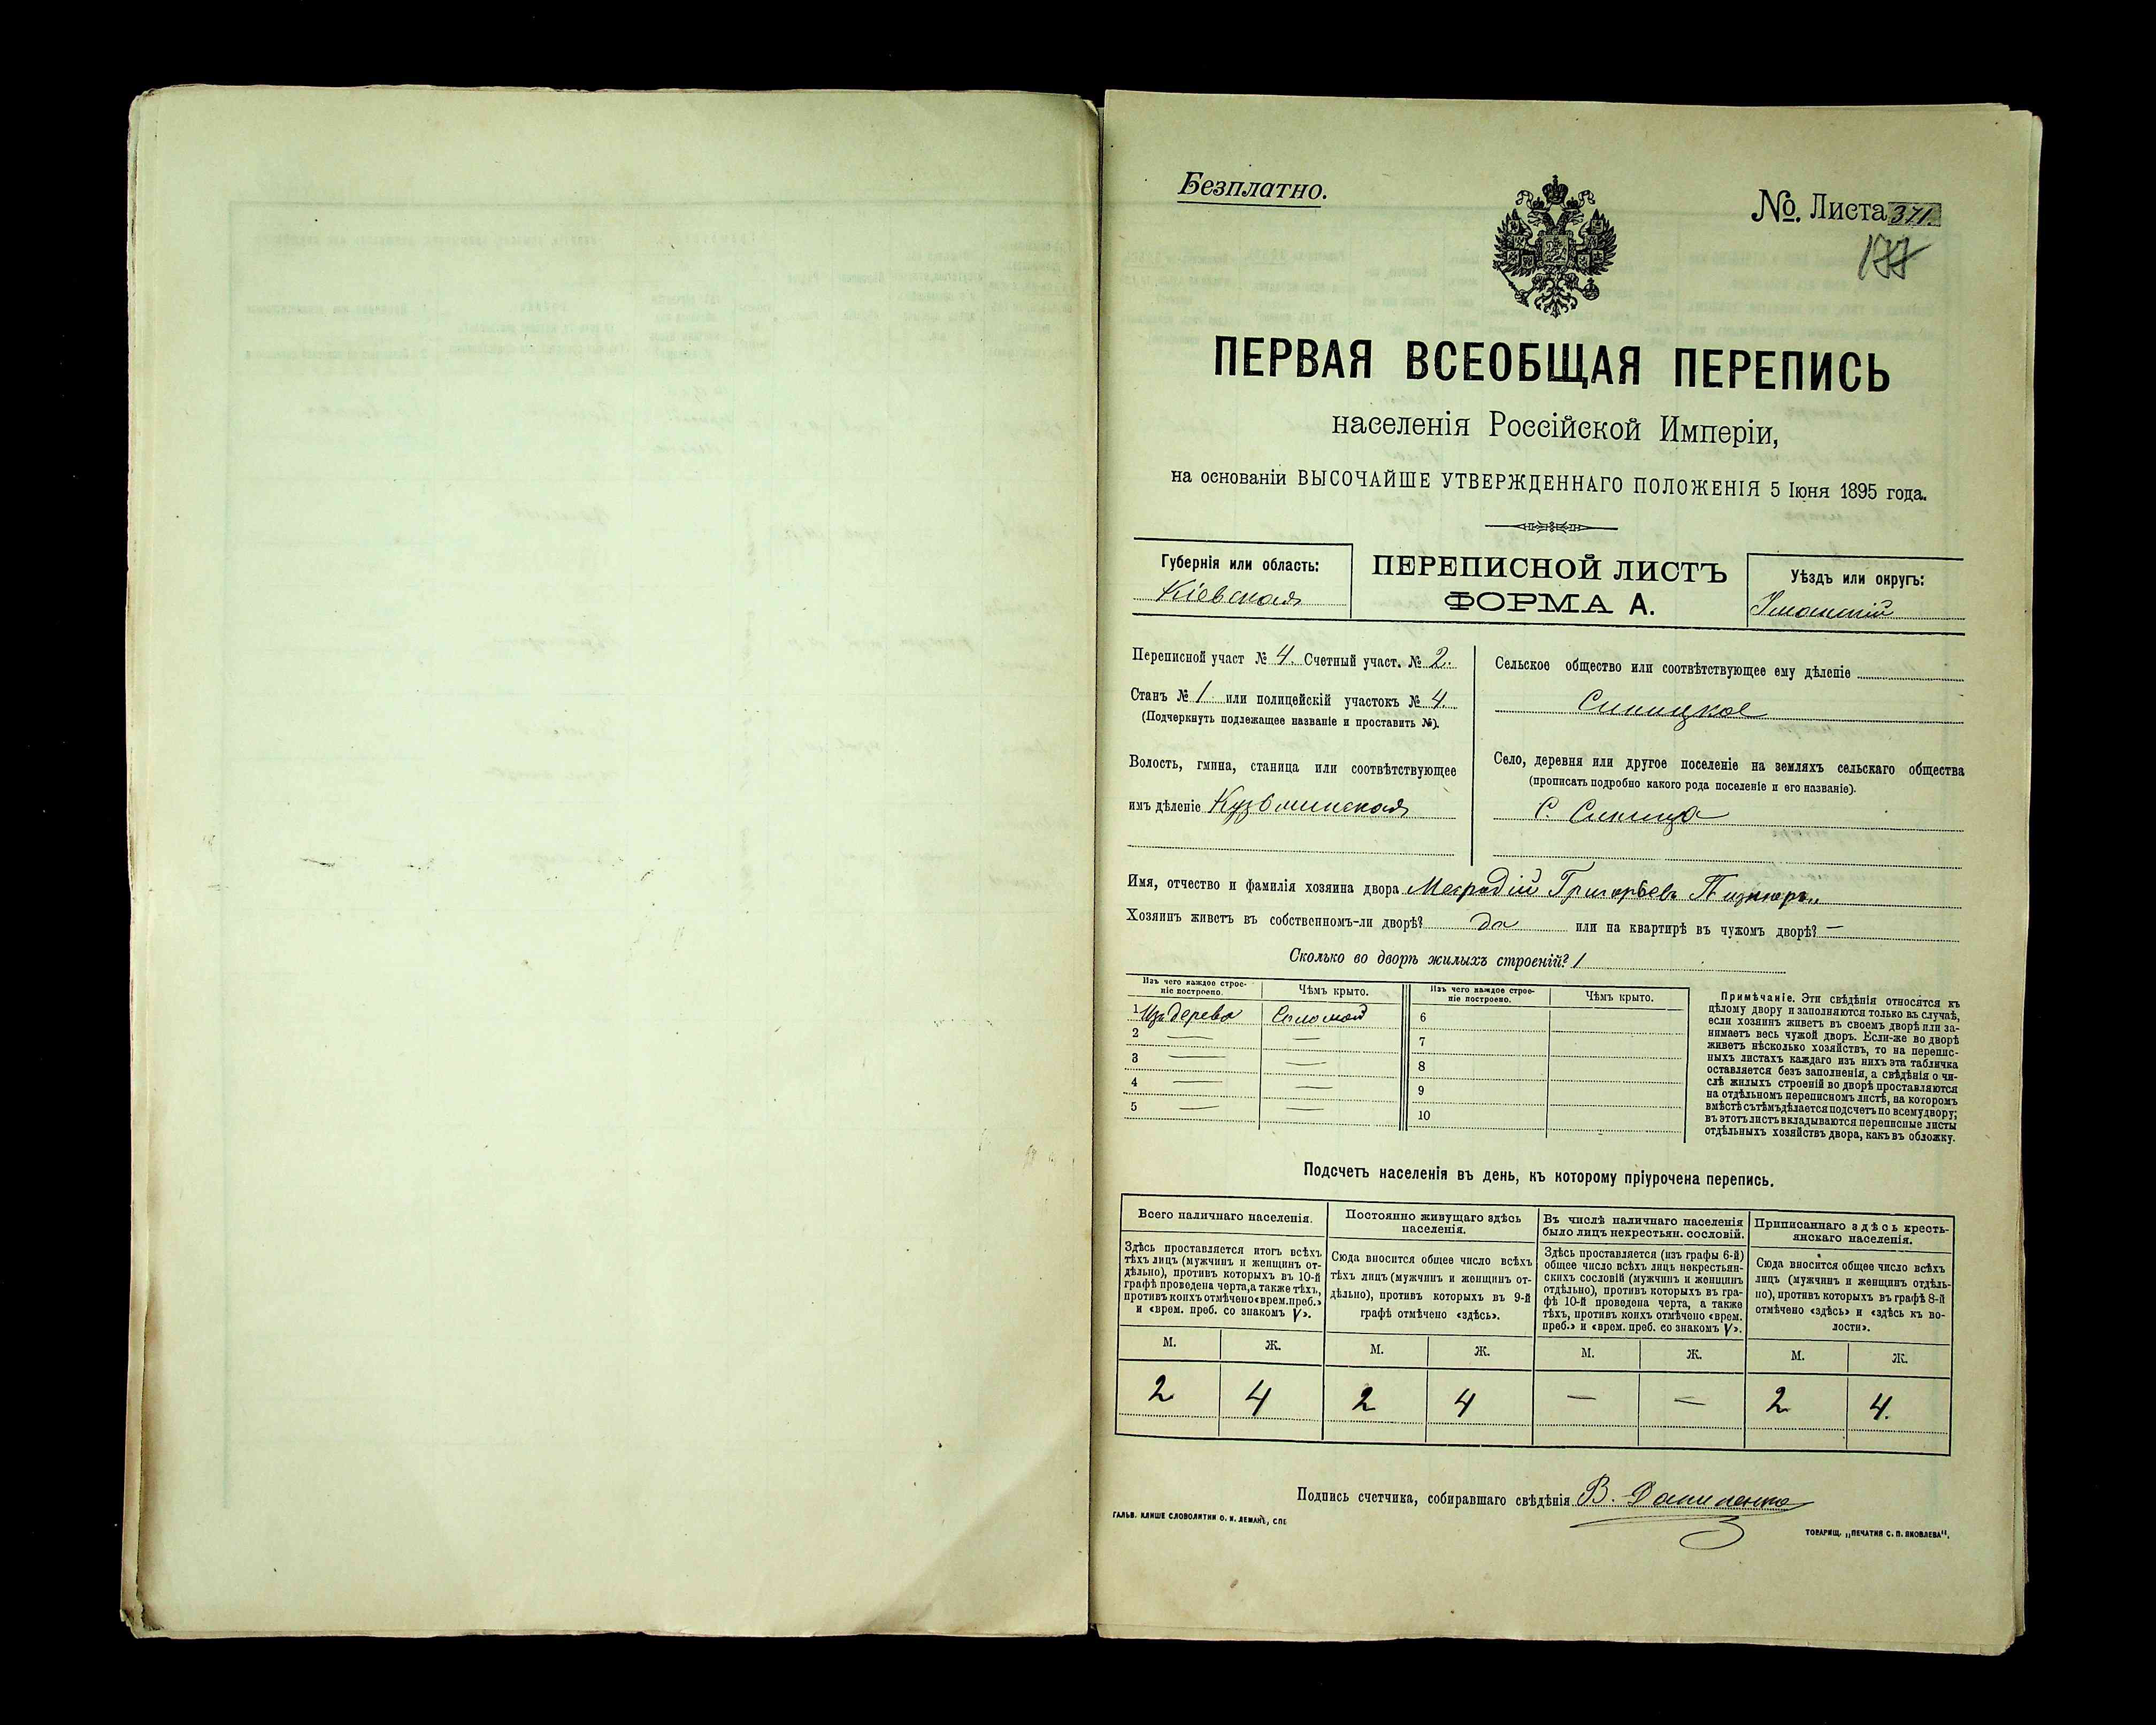 Безплатно.
№. Листа 371.
177
ПЕРВАЯ ВСЕОБЩАЯ ПЕРЕПИСЬ
населенія Россійской Имперіи,
на основаніи ВЫСОЧАЙШЕ УТВЕРЖДЕННАГО ПОЛОЖЕНІЯ 5 Іюня 1895 года.
Губернія или область:
Кіевская
ПЕРЕПИСНОЙ ЛИСТЪ
ФОРМА А.
Уѣздъ или округъ:
Уманскій
Переписной участ № 4. Счетный участ. № 2.
Станъ № 1 или полицейскій участокъ № 4.
(Подчеркнуть подлежащее названіе и проставить №).
Волость, гмина, станица или соотвѣтствующее
имъ дѣленіе Кузьминская
Сельское общество или соотвѣтствующее ему дѣленіе
Синицкое
Село, деревня или другое поселеніе на земляхъ сельскаго общества
(прописать подробно какого рода поселеніе и его названіе).
С. Синица
Имя, отчество и фамилія хозяина двора Меѳодій Григорьевъ
Хозяинъ живетъ въ собственномъ-ли дворѣ? да или на квартирѣ въ чужомъ дворѣ? —
Сколько во дворѣ жилыхъ строеній? 1
Изъ чего каждое строе-
ніе построено.
Чѣмъ крыто.
Изъ чего каждое строе-
ніе построено.
Чѣмъ крыто.
1 Изъ дерева Соломой 6
2 — — 7
3 — — 8
4 — — 9
5 — — 10
Примѣчаніе. Эти свѣдѣнія относятся къ
цѣлому двору и заполняются только въ случаѣ,
если хозяинъ живетъ въ своемъ дворѣ или за-
нимаетъ весь чужой дворъ. Если-же во дворѣ
живетъ нѣсколько хозяйствъ, то на перепис-
ныхъ листахъ каждаго изъ нихъ эта табличка
оставляется безъ заполненія, а свѣдѣнія о чи-
слѣ жилыхъ строеній во дворѣ проставляются
на отдѣльномъ переписномъ листѣ, на которомъ
вмѣстѣ съ тѣмъ дѣлается подсчетъ по всему двору;
въ этотъ листъ вкладываются переписные листы
отдѣльныхъ хозяйствъ двора, какъ въ обложку.
Подсчетъ населенія въ день, къ которому пріурочена перепись.
Всего наличнаго населенія.
Здѣсь проставляется итогъ всѣхъ
тѣхъ лицъ (мужчинъ и женщинъ от-
дѣльно), противъ которыхъ въ 10-й
графѣ проведена черта, а также тѣхъ,
противъ коихъ отмѣчено «врем. преб.»
и «врем. преб. со знакомъ V».
Постоянно живущаго здѣсь
населенія.
Сюда вносится общее число всѣхъ
тѣхъ лицъ (мужчинъ и женщинъ от-
дѣльно), противъ которыхъ въ 9-й
графѣ отмѣчено «здѣсь».
Въ числѣ наличнаго населенія
было лицъ некрестьян. сословій.
Здѣсь проставляется (изъ графы 6-й)
общее число всѣхъ лицъ некрестьян-
скихъ сословій (мужчинъ и женщинъ
отдѣльно), противъ которыхъ въ гра-
фѣ 10-й проведена черта, а также
тѣхъ, противъ коихъ отмѣчено «врем.
преб.» и «врем. преб. со знакомъ V».
Приписаннаго здѣсь кресть-
янскаго населенія.
Сюда вносится общее число всѣхъ
лицъ (мужчинъ и женщинъ отдѣль-
но), противъ которыхъ въ графѣ 8-й
отмѣчено «здѣсь» и «здѣсь къ во-
лости».
М. Ж. М. Ж. М. Ж. М. Ж.
2 4 2 4 — — 2 4.
Подпись счетчика, собиравшаго свѣдѣнія В. Даниленко
ГАЛЬВ. КЛИШЕ СЛОВОЛИТНИ О. И. ЛЕМАНЪ, СПБ
ТОВАРИЩ. „ПЕЧАТНЯ С. П. ЯКОВЛЕВА".